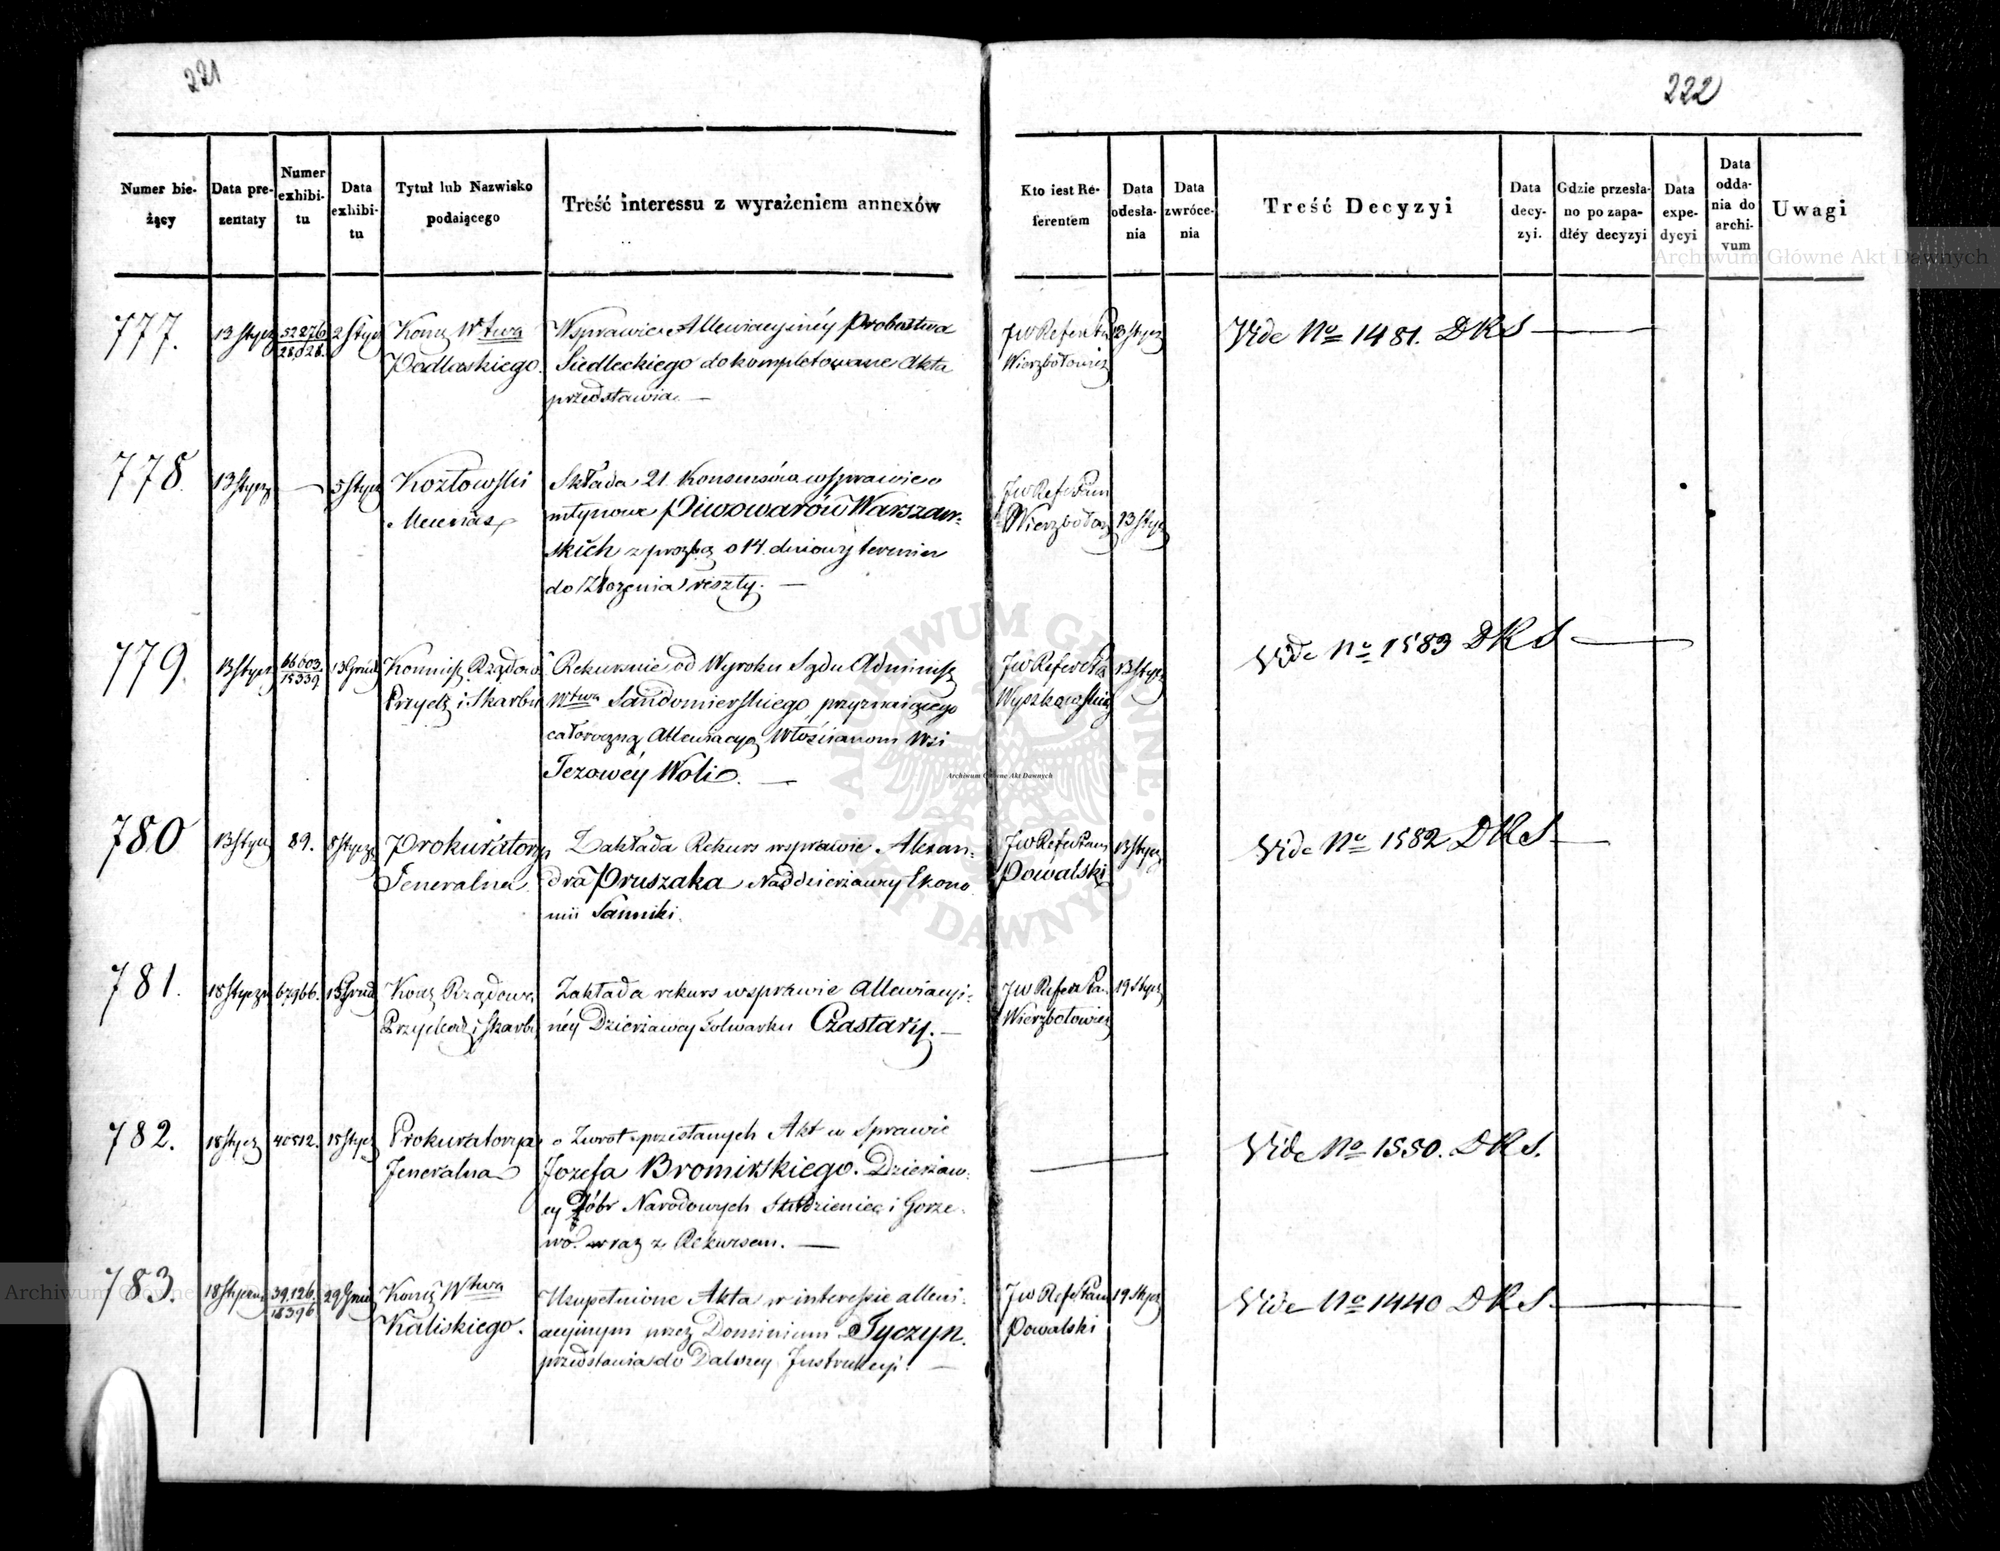 221
222
Numer bie-
żący
Data pre-
zentaty
Numer
exhibi-
tu
Data
exhibi-
tu
Tytuł lub Nazwisko
podaiącego
Treść interessu z wyrażeniem annexów
Kto iest Re-
ferentem
Data
odesła-
nia
Data
zwróce-
nia
Treść Decyzyi
Data
decy-
zyi.
Gdzie przesła-
no po zapa-
dłéy decyzyi
Data
expe-
dycyi
Data
odda-
nia do
archi-
vum
Uwagi
777.
13 Stycz
52276
28,028.
2 Stycz
Komiss Wtwa
Podlaskiego.
W sprawie Allewiacyinéy Probostwa
Siedleckiego dokompletowane Akta
przedstawia. —
JW Refer. Pan
Wierzbołowicz
13 Stycz
Vide No 1481. DRS —
778.
13 Stycz
—
5 Stycz
Kozłowski
Mecenas
Składa 21. Konsensów w sprawie o
młynowe Piwowarów Warszaw-
skich z prozbą o 14. dniowy termin
do złożenia reszty. —
JW Refer Pan
Wierzboło
13 Stycz
779.
13 Stycz
66603.
15339
13 Grud
Kommiss. Rządow
Przych i Skarbu
Rekursuie od Wyroku Sądu Adminis
Wtwa Sandomierskiego, przyznaiącego
całoroczną Allewiacyą Włościanom Wsi
Jezowéy Woli. —
JW Refer Pa
Wyszkowski
13 Stycz
Vide No 1583 DRS —
780
13 Stycz
89.
8 Stycz
Prokuratorya
Jeneralna.
Zakłada Rekurs w sprawie Alexan-
dra Pruszaka Naddzierzawcy Ekono
mii Sanniki.
JW Refer Pan
Powalski
13 Stycz
Vide No 1582 DRS —
781.
18 Styczn
67966.
15 Grud
Komis Rządowa
Przychod i Skarbu
Zakłada rekurs w sprawie Allewiacyi-
néy Dzierżawcy Folwarku Czastary. —
JW Refer Pa.
Wierzbołowicz
19 Stycz
782.
18 Stycz
40512.
15 Stycz
Prokuratorya
Jeneralna
o Zwrot przesłanych Akt w Sprawie
Jozefa Bromirskiego. Dzierżaw-
cy Dóbr Narodowych Studzieniec i Gorze-
wo. wraz z Rekursem. —
—
Vide No 1550. DRS.
783.
18 Stycz
39,126.
18396
29 Grud
Komis Wtwa
Kaliskiego.
Uzupełnione Akta w interessie allewi-
acyinym przez Dominium Tyczyn.
przedstawia do Dalszey Instrukcyi. —
JW Refer Pan
Powalski
19 Stycz
Vide No 1440 DRS. —
Archiwum Główne Akt Dawnych